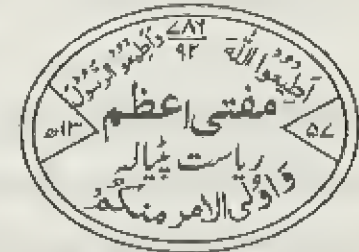 ۷۸۶
۹۲
اَطِيعُوا اللّٰهَ وَاَطِيعُوا الرَّسُولَ
مفتی اعظم
۱۳ھ ۵۷
ریاست پٹیالہ
وَاُولِی الامر منکم